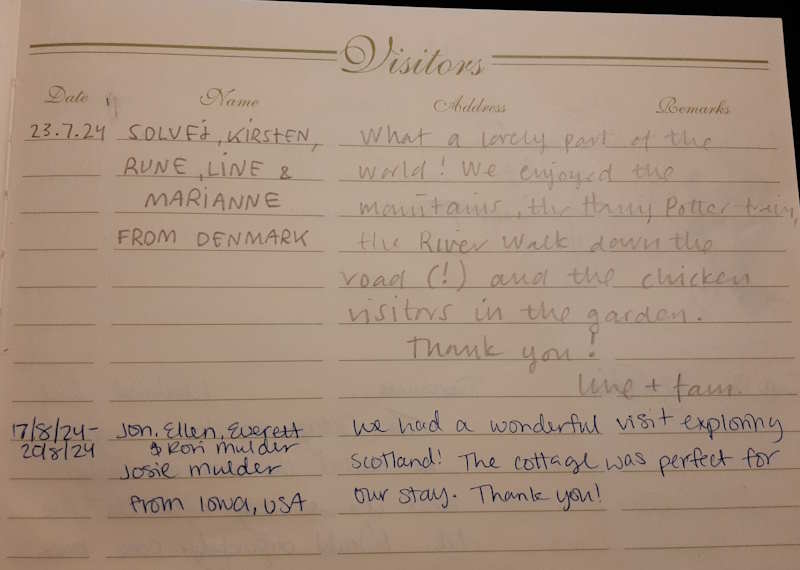 Visitors
Date Name Address Remarks
23.7.24 SOLVEJ, KIRSTEN, What a lovely part of the
RUNE, LINE & world! We enjoyed the
MARIANNE mountains, the Harry Potter train,
FROM DENMARK the River Walk down the
road (!) and the chicken
visitors in the garden.
Thank you!
Line + fam.
17/8/24- Jon, Ellen, Everett we had a wonderful visit exploring
20/8/24 & Rori Mulder
Josie Mulder Scotland! The cottage was perfect for
From Iowa, USA our stay. Thank you!